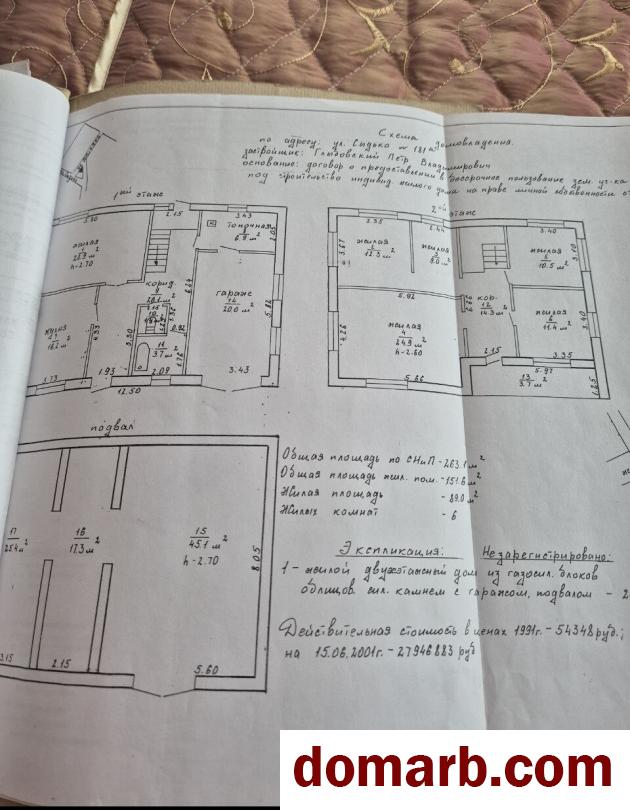 Схема
домовладения.
по адресу: ул. Сыдько № 131а
застройщик: Владимирович
основание: договор о предоставлении в бессрочное пользование зем. уч-ка
под строительство индивид. жилого дома на праве личной собственности от
ый этаж
2ой этаж
5.80
2.15
3.43
3.35
3.40
жилая
1
h-2.70
топочная
6.9 м²
2.03
3.67
жилая
12.3 м²
жилая
3
9.0 м²
жилая
5
10.5 м²
3.10
корид.
9
20.1 м²
6.24
гараж
14
20.0 м²
5.82
5.92
кор.
12
14.3 м²
6.86
кухня
4.93
3.30
0.92
1.76
жилая
4
24.9 м²
h-2.60
4.26
жилая
6
11.4 м²
3.40
11
3.7 м²
3.73
1.93
2.09
3.43
12.50
5.66
2.15
3.35
5.92
13
3.7 м²
1.25
подвал
Общая площадь по СНиП - 263.1 м²
Общая площадь жил. пом. - 151.6 м²
Жилая площадь - 89.0 м²
Жилых комнат - 6
17
25.4 м²
16
17.3 м²
15
45.1 м²
h-2.70
8.05
3.15
2.15
5.60
Экспликация: Незарегистрировано:
1 - жилой двухэтажный дом из газосил. блоков
облицов. сил. камнем с гаражом, подвалом - 2
Действительная стоимость в ценах 1991г. - 54348 руб.;
на 15.06.2001г. - 27946883 руб
domarb.com